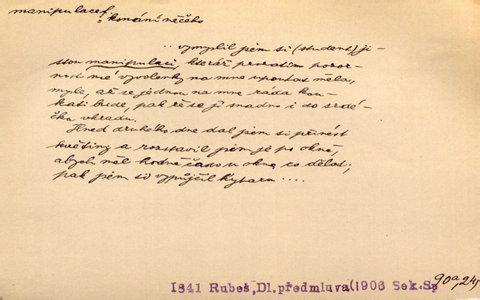 manipulace f.
: konání něčeho
... vymyslil jsem si (student) ji-
stou manipulaci, kteráž prozatím pozor-
nost mé vyvolenky na mne upoutat měla,
myslé, až se jednou na mne ráda kou-
kati bude, pak že se jí snadno i do srdé-
čka vkradu.
Hned druhého dne dal jsem si přinést
květiny a rozstavil jsem je po okně,
abych měl hodně často u okna co dělat;
pak jsem si vypůjčil kytaru ....
1841 Rubeš, Dl. předmluva (1906 Sek. Sp
90a, 245